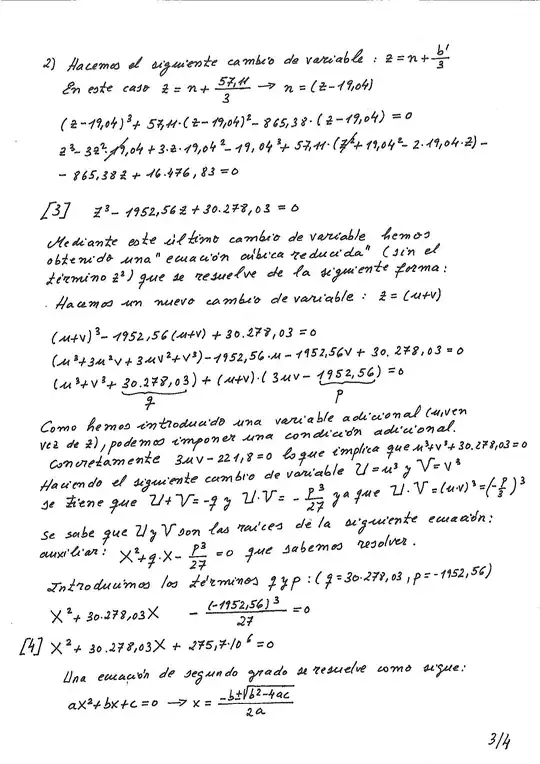 2) Hacemos el siguiente cambio de variable : z = n + b'/3
En este caso z = n + 57,11/3 → n = (z-19,04)
(z-19,04)³ + 57,11·(z-19,04)² - 865,38·(z-19,04) = 0
z³ - 3z²·19,04 + 3·z·19,04² - 19,04³ + 57,11·(z² + 19,04² - 2·19,04·z) -
- 865,38z + 16.476,83 = 0
[3] z³ - 1952,56z + 30.278,03 = 0
Mediante este último cambio de variable hemos
obtenido una "ecuación cúbica reducida" (sin el
término z²) que se resuelve de la siguiente forma:
. Hacemos un nuevo cambio de variable : z = (u+v)
(u+v)³ - 1952,56(u+v) + 30.278,03 = 0
(u³+3u²v+3uv²+v³) - 1952,56·u - 1952,56v + 30.278,03 = 0
(u³+v³+30.278,03) + (u+v)·(3uv - 1952,56) = 0
q p
Como hemos introducido una variable adicional (u,v en
vez de z), podemos imponer una condición adicional.
Concretamente 3uv - 221,8 = 0 lo que implica que u³+v³+30.278,03=0
Haciendo el siguiente cambio de variable U=u³ y V=v³
se tiene que U+V=-q y U·V = - p³/27 ya que U·V=(u·v)³=(-p/3)³
Se sabe que U y V son las raíces de la siguiente ecuación:
auxiliar: X²+q·X - p³/27 = 0 que sabemos resolver.
Introducimos los términos q y p : (q=30.278,03, p=-1952,56)
X² + 30.278,03X - (-1952,56)³/27 = 0
[4] X² + 30.278,03X + 275,7·10⁶ = 0
Una ecuación de segundo grado se resuelve como sigue:
aX²+bx+c=0 → x = -b±√b²-4ac/2a
3/4